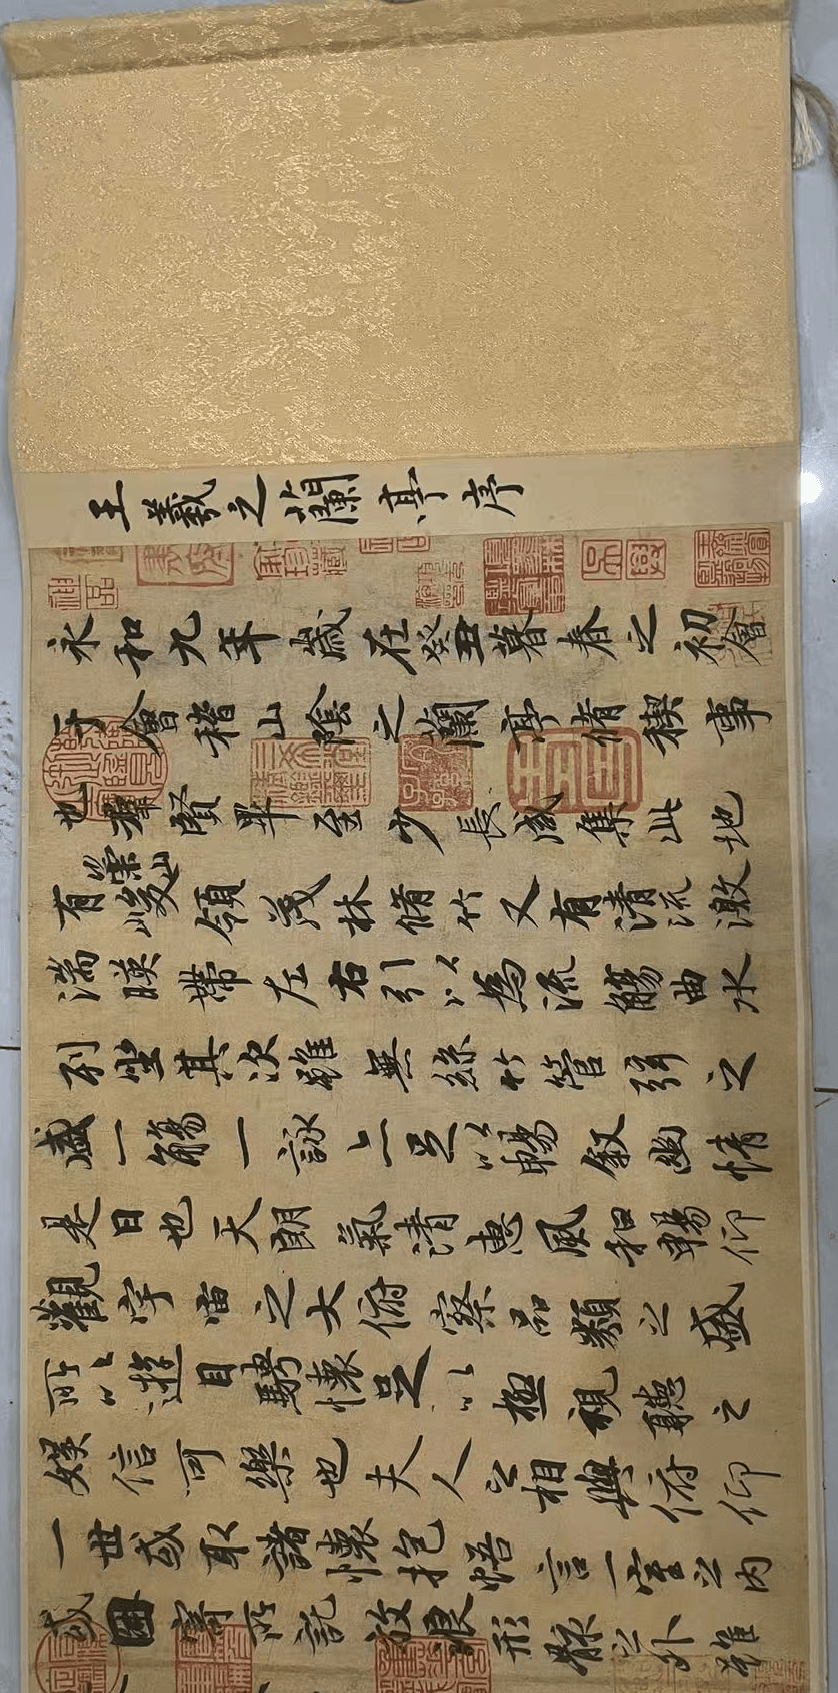 王羲之蘭亭序
永和九年歲在癸丑暮春之初會
于會稽山陰之蘭亭脩稧事
也羣賢畢至少長咸集此地
有崇山峻領茂林脩竹又有清流激
湍暎帶左右引以為流觴曲水
列坐其次雖無絲竹管弦之
盛一觴一詠亦足以暢叙幽情
是日也天朗氣清惠風和暢仰
觀宇宙之大俯察品類之盛
所以遊目騁懷足以極視聽之
娛信可樂也夫人之相與俯仰
一世或取諸懷抱悟言一室之內
或因寄所託放浪形骸之外雖